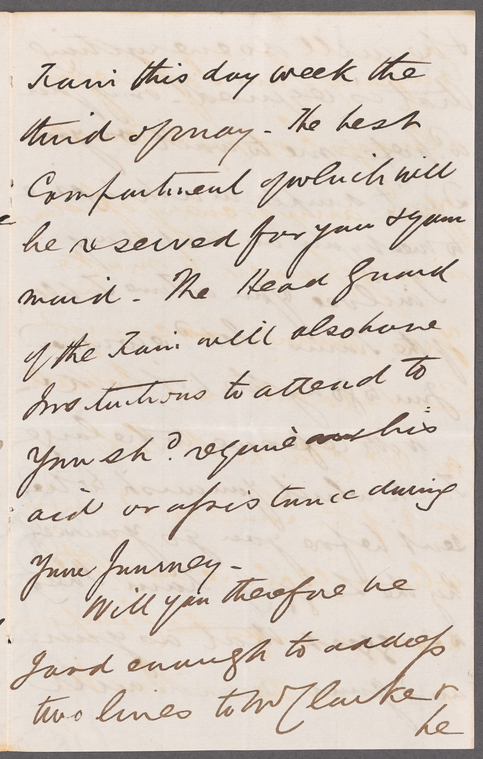 Train this day week the
third of may - The best
Compartment of which will
be reserved for you & your
maid - The Head Guard
of the Train will also have
Instructions to attend to
You sh.d require his
aid or assistance during
Your Journey -
Will you therefore be
good enough to address
two lines to Mr Clarke &
he